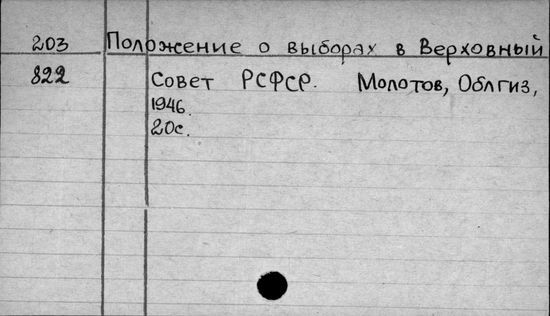 203 Положение о выборах в Верховный
822 Совет РСФСР. Молотов, Облгиз,
1946.
20с.